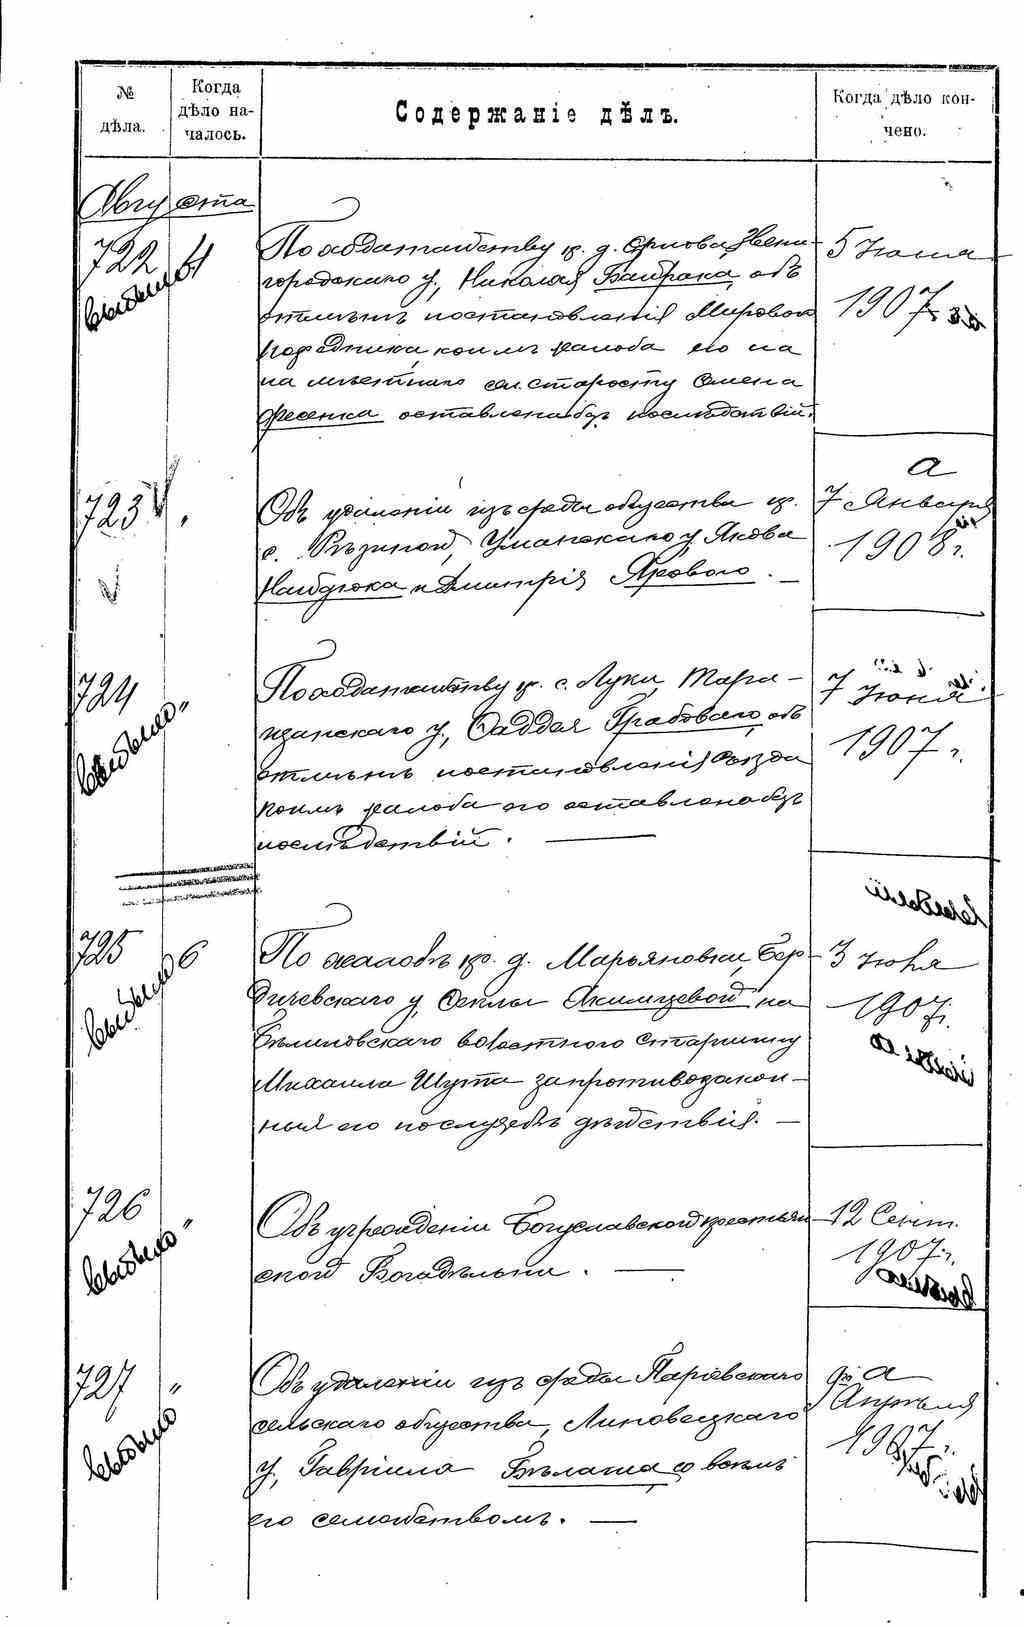 № дѣла.
Когда дѣло на-
чалось.
Содержаніе дѣлъ.
Когда дѣло кон-
чено.
Августа
722 4
выбыло
По ходатайству кр. д. Орлова, Звени-
городскаго у., Николая Байрака, объ
отмѣнѣ постановленія Мироваго
Посредника, коимъ жалоба его на
на мѣстнаго сел. старосту Семена
Фесенка оставлена безъ послѣдствій.
5 Іюня
1907
723 "
Объ удаленіи изъ среды общества кр.
с. Рѣзиной, Уманскаго у, Якова
Найдюка и Дмитрія Яроваго. —
а
7 Января
1908 г.
724 "
выбыло
По ходатайству кр. с. Луки, Тара-
щанскаго у., Фаддея Грабоваго, объ
отмѣнѣ постановленія Съѣзда
коимъ жалоба его оставлена безъ
послѣдствій. —
7 Іюня
1907 г.
725 6
выбыло
По жалобѣ кр. д. Марьяновки, Бер-
дичевскаго у, Феклы Якимцевой на
Бѣлиловскаго волостного Старшину
Михаила Шута за противозакон-
ныя его по службѣ дѣйствія. —
3 Іюня
1907 г.
726 "
выбыло
Объ учрежденіи Богуславской крестьян-
ской Богадѣльни. —
12 Сент.
1907 г.
выбыло
727 "
выбыло
Объ удаленіи изъ среды Паріевскаго
сельскаго общества, Липовецкаго
у, Гавріила Бѣлаша со всѣмъ
его семействомъ. —
а
Апрѣля
1907 г.